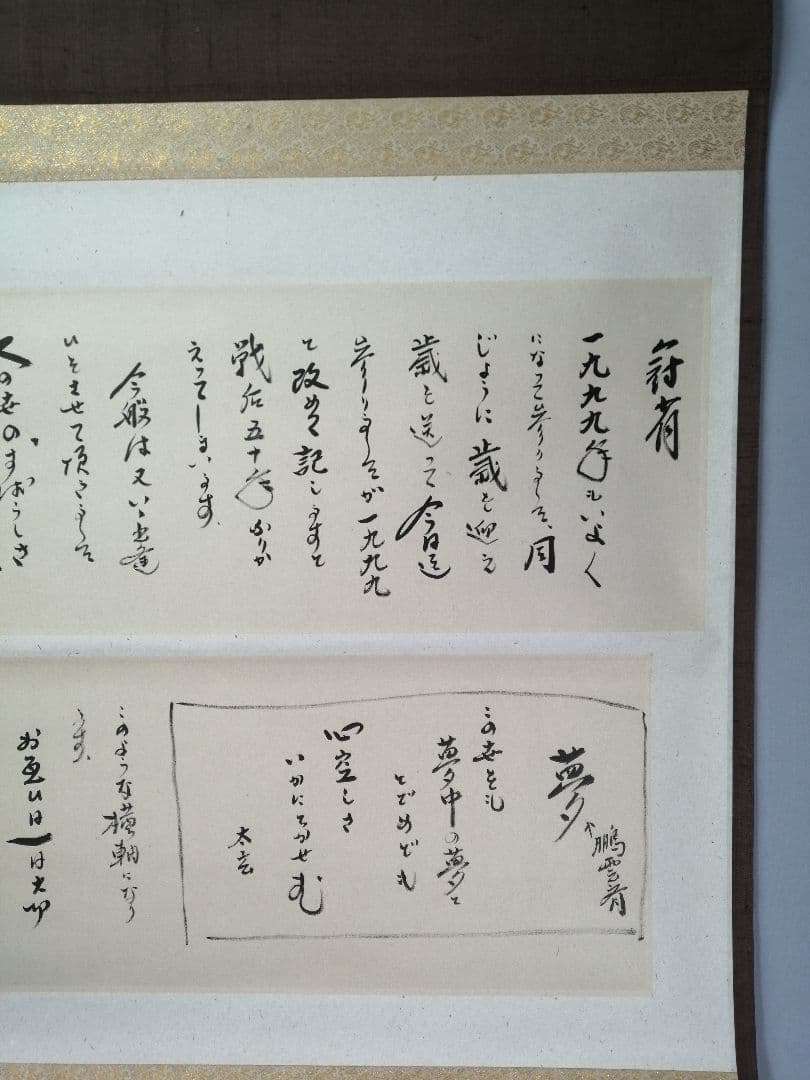 冠省
一九九九年もいよく
になって参りました、同
じように歳を迎え
歳を送って今日迄
参りましたが一九九九
と改めて記しますと
戦后五十年ふりか
えってしまいます。
今般は又いゝ出逢
いをさせて頂きました
人の世のすばらしさ
夢
鵬雲斎
この世をも
夢中の夢と
とどめども
心空しき
いかにてかせむ
太玄
このような横軸になり
ます。
お互いは一日大切